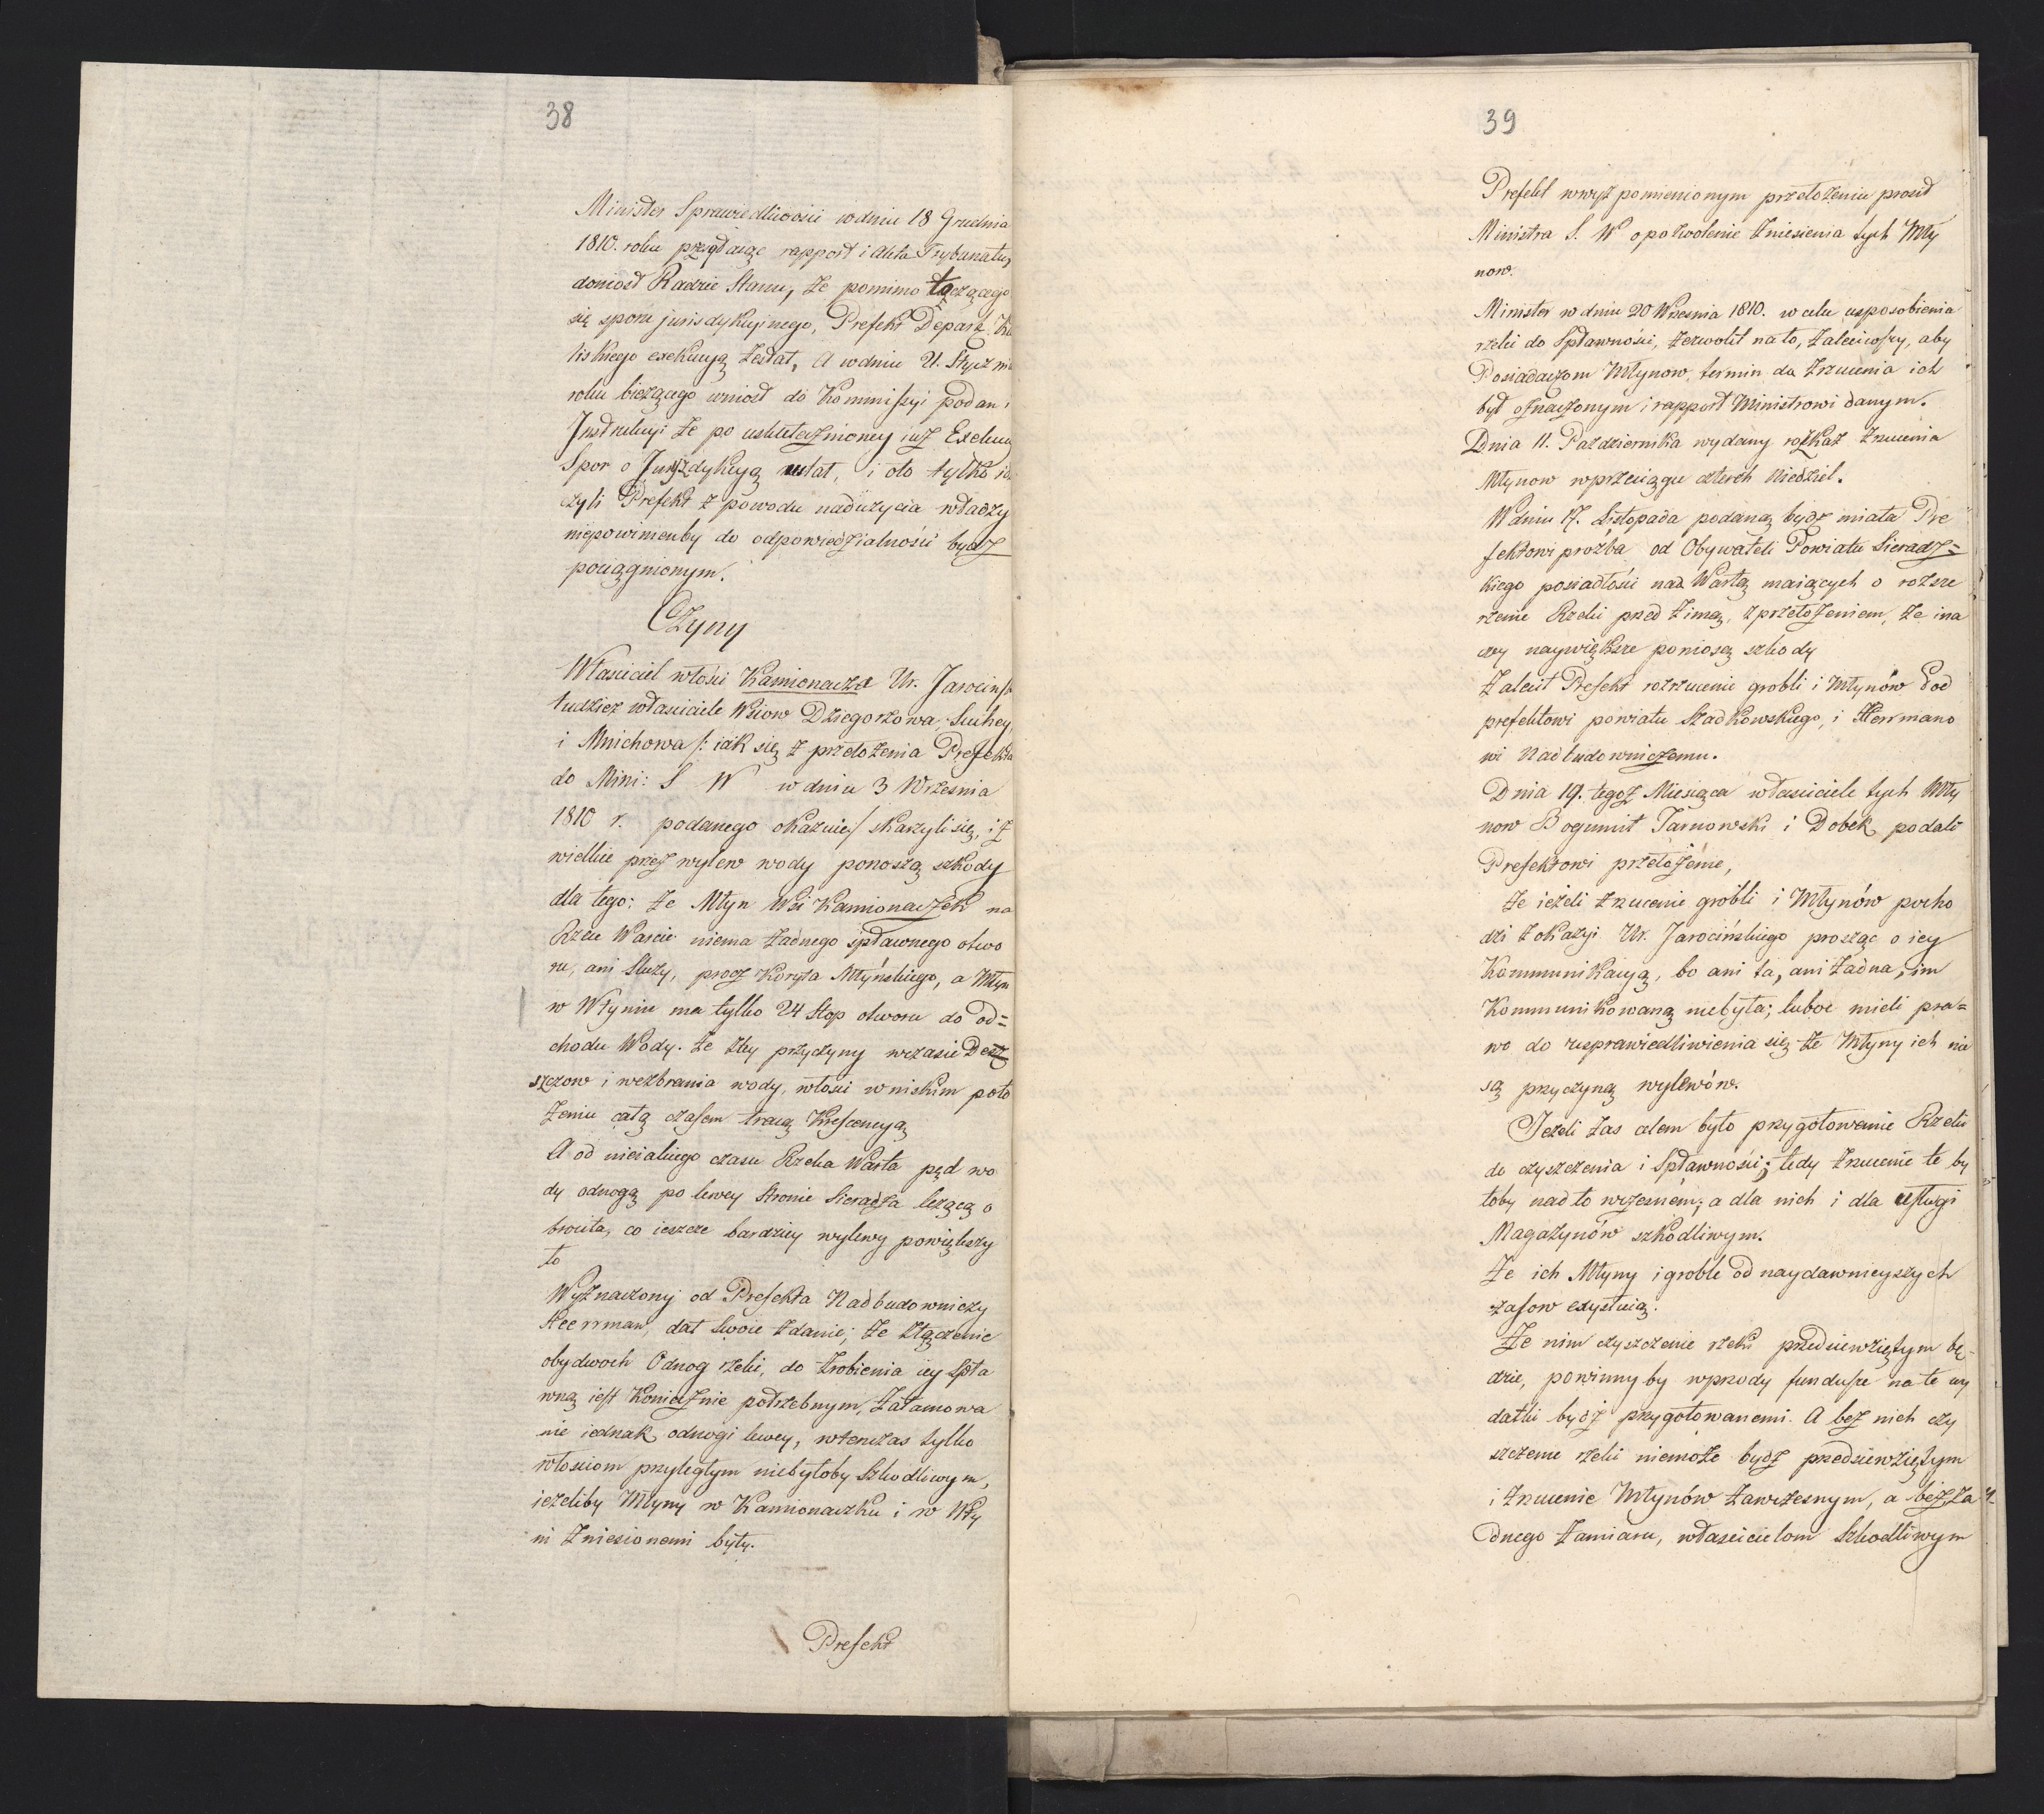 38
Minister Sprawiedliwości w dniu 18 Grudnia
1810. roku przydaiąc rapport i akta Trybunału,
doniosł Radzie Stanu, że pomimo tączącego
się sporu jurisdykcyinego, Prefekt Depart. Ka
liskiego exekucyą zesłał, A w dniu 21. Stycznia
roku bieżącego wniosł do Kommissyi podan
Instrukcyi że po uskutecznioney iuż Exekucy
Spor o Juryzdykcyą ustał, i oto tylko idz
czyli Prefekt z powodu nadużycia władzy
niepowinienby do odpowiedzialności bydz
pociągnionym.
Czyny
Właściciel włości Kamionacza Ur. Jarocińsk
tudzież właściciele Wsiow Dziegorzowa, Suchey,
i Mnichowa /: iak się z przełożenia Prefekta
do Mini: S W w dniu 3 Września
1810 r. podanego okazuie:/ skarżyli się, iż
wielkie przez wylew wody ponoszą szkody
dla tego: że Młyn Wsi Kamionaczek na
Rzece Warcie niema żadnego spławnego otwo
ru, ani Sluzy, procz Koryta Młyńskiego, a Młyn
w Włyniu ma tylko 24 Stop otworu do od=
chodu Wody. że z tey przyczyny w czasie Desz
szczow i wezbrania wody, włości w niskim poło
żeniu całą czasem tracą Krescencyą
A od nieiakiego czasu Rzeka Warta pęd wo
dy odnogą po lewey Stronie Sieradza leżącą o
brociła, co ieszcze bardziey wylewy powiększy
ło
Wyznaczony od Prefekta Nadbudowniczy
Heerrman, dał Swoie zdanie; że złączenie
obydwoch Odnog rzeki, do zrobienia iey Spła
wną iest Koniecznie potrzebnym, Zatamowa
nie iednak odnogi lewey, wtenczas tylko
włosciom przyległym niebyłoby Szkodliwym,
ieżeliby Młyny w Kamionaczku i w Wły
ni zniesionemi były.
Prefekt
39
Prefekt wwyż pomienionym przełożeniu prosił
Ministra S. W o pozwolenie zniesienia tych Mły
now.
Minister w dniu 20 Września 1810. w celu usposobienia
rzeki do Spławności, zezwolił na to, zaleciwszy, aby
Posiadaczom Młynow, termin do zrzucenia ich
był oznaczonym i rapport Ministrowi danym.
Dnia 11. Pazdziernika wydany rozkaz zrzucenia
Młynow wprzeciągu czterech Niedziel.
W dniu 17. Listopada podaną bydź miała Pre
fektowi prożba od Obywateli Powiatu Sieradz=
kiego posiadłości nad Wartą maiących o rozsze
rzenie Rzeki przed zimą, z przełożeniem, że ina
czey naywiększe poniosą szkody
Zalecił Prefekt rozrzucenie grobli i Młynów Pod
prefektowi powiatu Szadkowskiego, i Herrmano
wi Nadbudowniczemu.
Dnia 19. tegoż Miesiąca właściciele tych Mły
now Bogumił Tarnowski i Dobek podali
Prefektowi przełożenie,
że ieżeli zrzucenie grobli i Młynów pocho
dzi z okazyi Ur. Jarocińskiego prosząc o iey
Kommunikacyą, bo ani ta, ani żadna, im
Kommunikowaną niebyła; luboc mieli pra=
wo do usprawiedliwienia się że Młyny ich nie
są przyczyną wylewów.
Jeżeli zas celem było przygotowanie Rzeki
do czyszczenia i Spławności; tedy zrzucenie te by
łoby nad to wczesnem; a dla nich i dla usługi
Magazynów szkodliwym.
że ich Młyny i groble od naydawnieyszych
czasow exystuią.
że nim czyszczenie rzeki przedsiewziętym bę=
dzie, powinnyby wprzody fundusze na te wy
datki bydż przygotowanemi. A bez nich czy
szczenie rzeki niemoże bydż przedsiewziętym
i zrzucenie Młynów zawczesnym, a bez ża
dnego zamiaru, właścicielom Szkodliwym